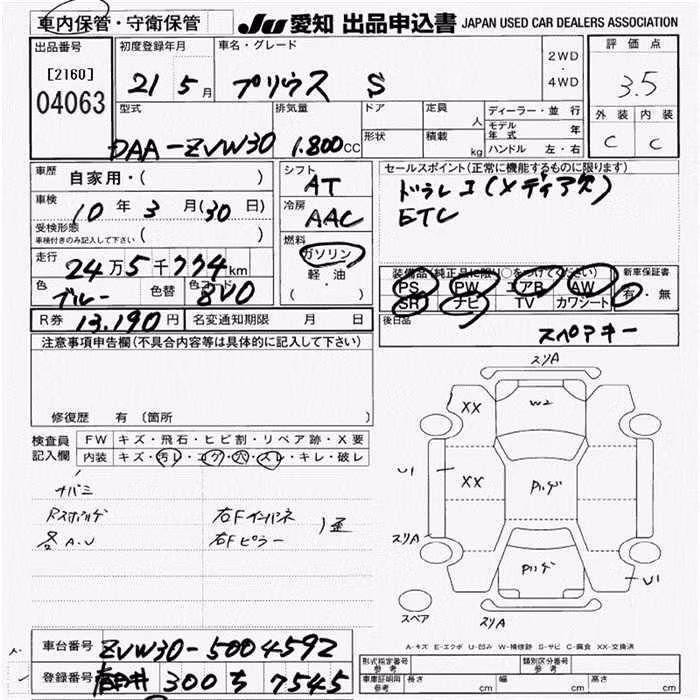 車内保管・守衛保管
JU 愛知 出品申込書 JAPAN USED CAR DEALERS ASSOCIATION
出品番号
[2160]
04063
初度登録年月
21 5 月
車名・グレード
プリウス S
2WD
・
4WD
評価点
3.5
外装 内装
C C
型式
DAA-ZVW30
排気量
1.800 CC
ドア
定員
人
形状
積載
kg
ディーラー・並行
モデル年式 年
ハンドル 左・右
車歴
自家用・( )
車検
10 年 3 月(30 日)
受検形態
車検付きのみ記入して下さい ( )
走行
24万5千774km
色
ブルー
色替
色コード
8V0
シフト
AT
冷房
AAC
燃料
ガソリン
軽・油
( )
セールスポイント(正常に機能するものに限ります)
ドラレコ(メディア欠)
ETC
装備品(純正品に限り○をつけてください)
PS PW エアB AW
SR ナビ TV カワシート
新車保証書
有・無
R券 13.190円
名変通知期限 月 日
後日品
スペアキー
注意事項申告欄(不具合内容等は具体的に記入して下さい)
修復歴 有 〔箇所 〕
検査員
記入欄
FW キズ・飛石・ヒビ割・リペア跡・X要
内装 キズ・汚レ・コゲ・穴・スレ・キレ・破レ
ナバミ
右Fインパネ
右Fピラー
歪
各A.U
スリA
XX
W2
XX
U1
P.ハゲ
スリA
P.ハゲ
U1
スペア
スリA
A-キズ E-エクボ U-凹み W-補修跡 S-サビ C-腐食 XX-交換済
車台番号 ZVW30-5004592
登録番号 300 ち 7545
形式指定番号
参考
類別区分番号
参考
車庫証明用
参考
長さ cm
幅 cm
高さ cm